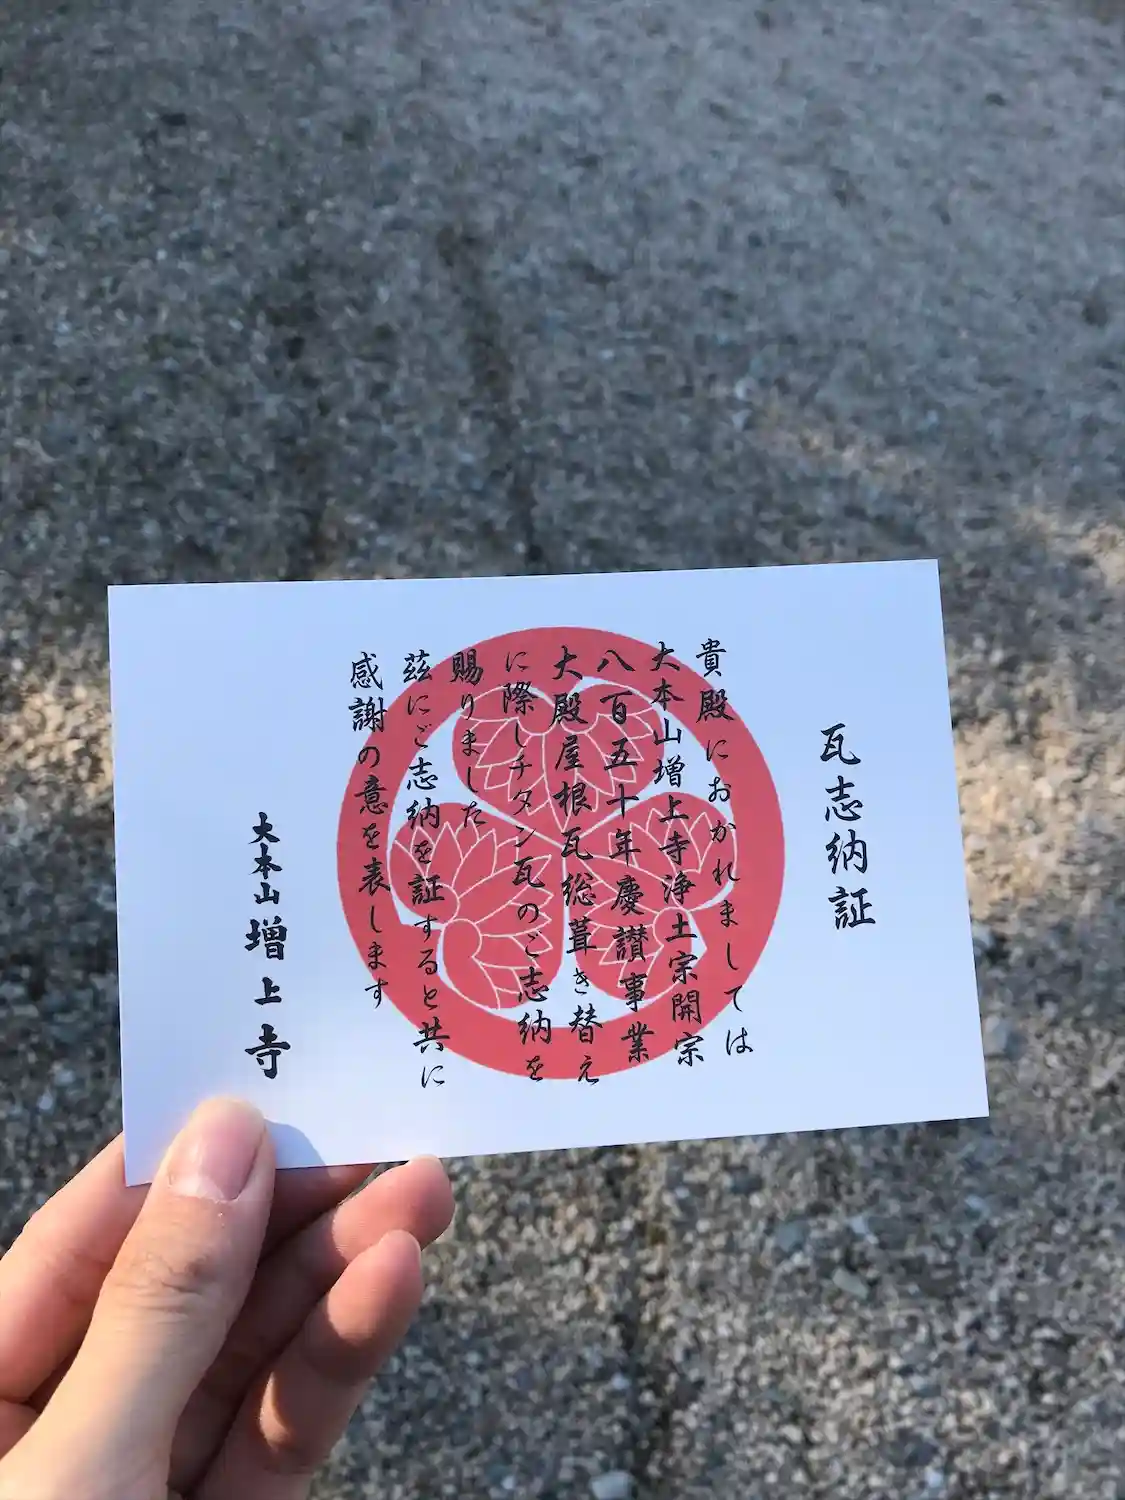 瓦志納証
貴殿におかれましては
大本山増上寺浄土宗開宗
八百五十年慶讃事業
大殿屋根瓦総葺き替え
に際しチタン瓦のご志納を
賜りました
茲にご志納を証すると共に
感謝の意を表します
大本山増上寺